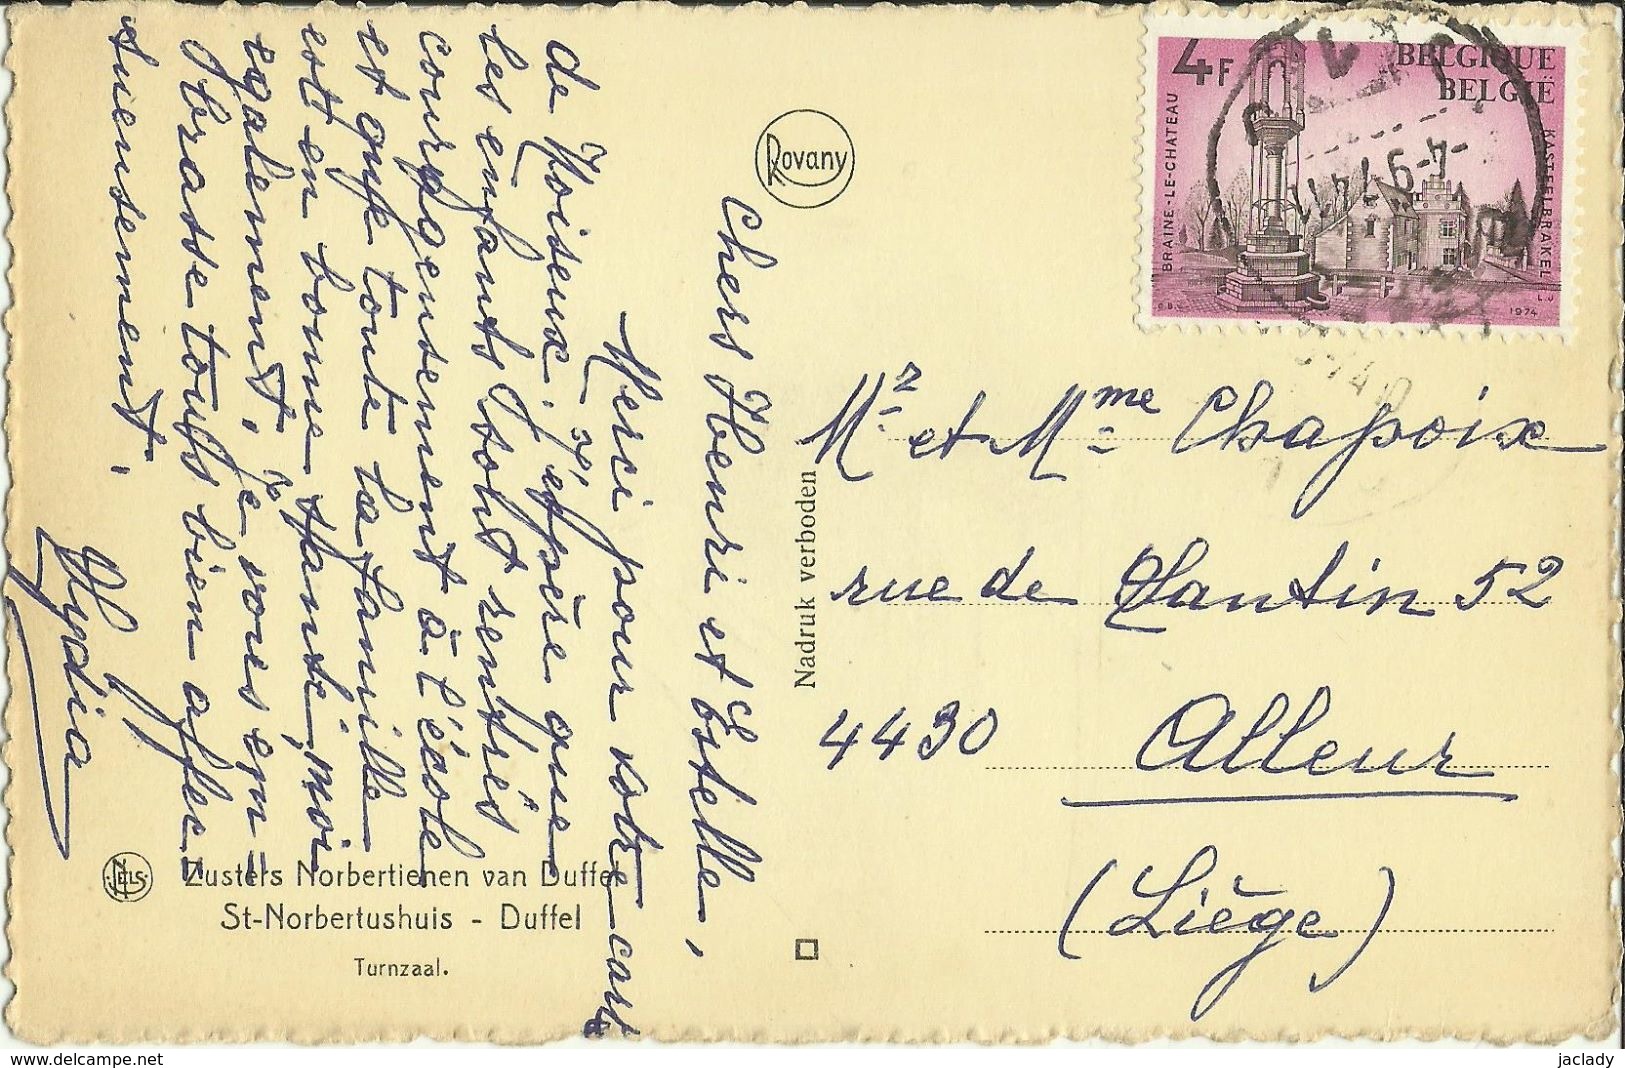 Chers Henri et Estelle,
Merci pour votre carte
de Noiseux. J'espère que
les enfants sont rentrés
courageusement à l'école
et que toute la famille
est en bonne santé, moi
également. Je vous em-
brasse tous bien affec-
tueusement.
Lydia
Rovany
Nadruk verboden
4F
BELGIQUE
BELGIË
BRAINE-LE-CHATEAU
KASTEELBRAKEL
1974
-4-9 74
Mr et Mme Chapoix
rue de Xantin 52
4430 Alleur
(Liège)
NELS
Zusters Norbertienen van Duffel
St-Norbertushuis - Duffel
Turnzaal.
www.delcampe.net
jaclady